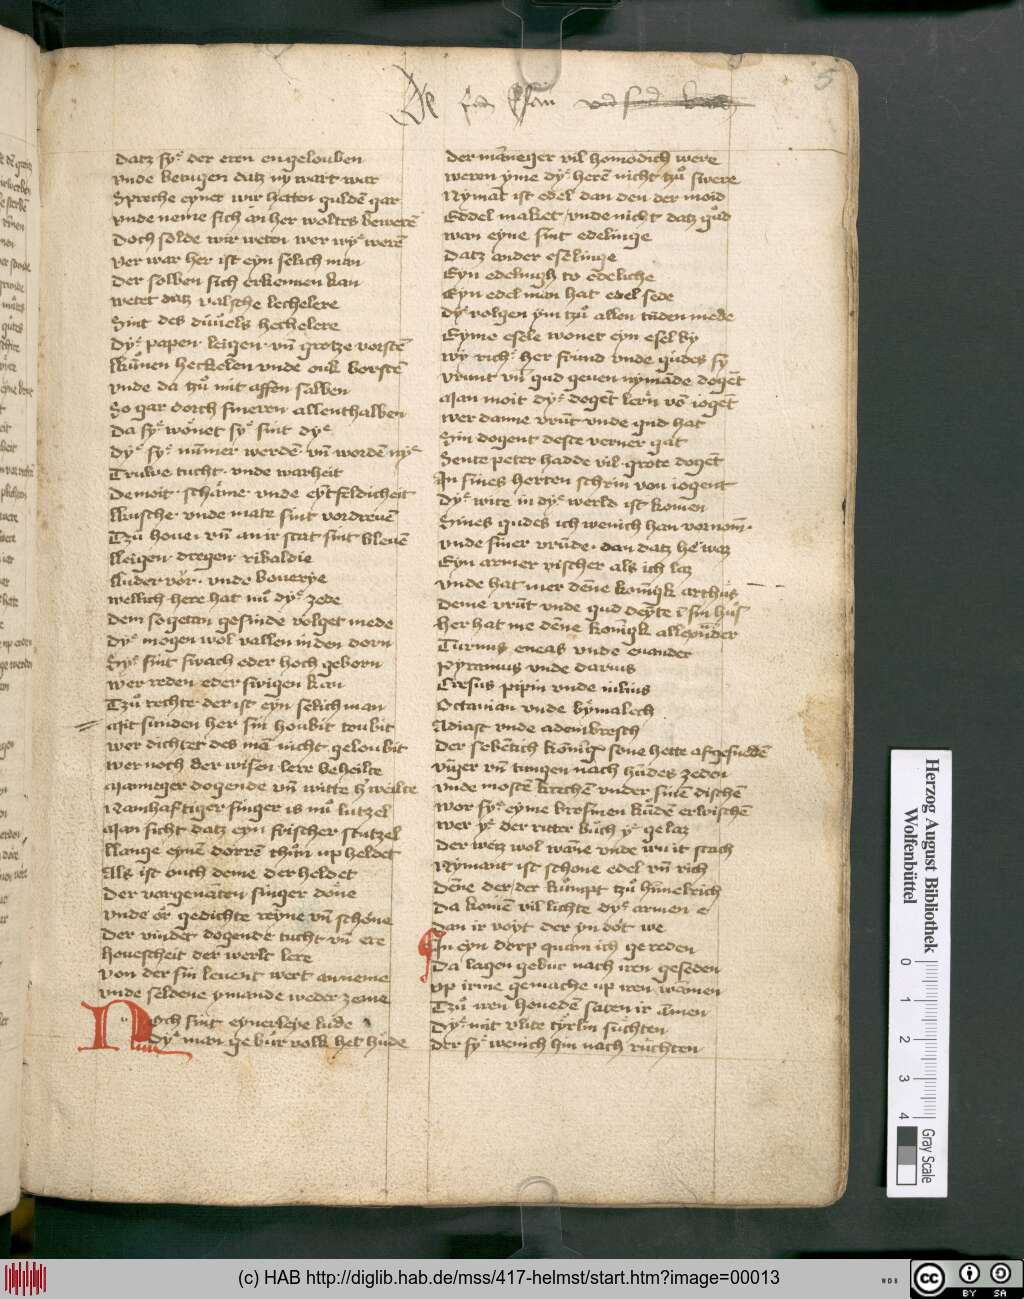 5
datz syͤ der eren engelouben
vnde betugen datz ny wart war
Spreche eyner wir haten gulden gar
vnde neme sich an her woltes bewerē
Doch solde wir weten wer wyͤ werē
Ver war her ist eyn selich man
Der solben sich erkennen kan
wetet datz valsche lechelere
Sint des duͤuels hechelere
Dyͤ papen leigen vn̄ grotze vorstē
kuͤnen heckelen vnde ouk borstē
vnde da tzuͦ mit affen salben
So gar dorch sineren allenthalben
Da syͤ woͤnet syͤ sint dyͤ
Dyͤ syͤ nūmer werdē vn̄ wordē nyͤ
Truwe tucht vnde warheit
Demoit schaͤme vnde eyͤtfeldicheit
kusche vnde mate sint vordreuē
Tzuͦ houe vn̄ an ir stat sint bleuē
Leigen dregen ribaldie
Luder voͤr vnde bouerye
wellich here hat nuͦ dyͤ zede
Dem sogetan gesinde volget mede
Dyͤ mogen wol vallen in den dorn
Syͤ sint swach eder hoch geborn
wer reden eder swigen kan
Tzuͦ rechte der ist eyn selich man
Mit sunden her sin houbit toubit
wer dichtet des mā nicht geloubit
wer noch der wisen lere beheilte
Manneger dogende vn̄ witte h' weilte
Namhaftiger singer is nuͦ lutzel
Man sicht datz eyn frischer stutzel
Lange eynē dorrē thūn vp heldet
Als ist ouch deme der heldet
Der vorgenāten singer doͤne
vnde oͤr gedichte reyne vn̄ schoͤne
Der vindet dogende tucht vn̄ ere
houescheit der werlt lere
von der sin leuent wert anneme
vnde seldene ymande weder zeme
Noch sint eynerleye lude
Dyͤ man gebuͤr volk het huͤde
Der māneger vil homodich were
weren yme dyͤ herē nicht tzuͦ swere
Nymāt ist edel dan den der moid
Eddel maket vnde nicht datz guͦd
wan eyne sint edelinge
Datz ander eselinge
Eyn edelingh to ēdeliche
Eyn edel man hat edel sede
dyͤ volgen ym tzuͦ allen tiden mede
Eyme esele wonet eyn esel by
wy rich her frund vnde gudes sy
vrunt vn̄ gud geuen nymāde dogēt
Man moit dyͤ dogēt lern vō iogēt
wer danne vrūt vnde gud hat
Sin dogent deste verner gat
Sente peter hadde vil grote dogēt
In sines herten schrin von iogent
Dyͤ wite in dyͤ werld ist komen
Sines gudes ich wenich han vornom̄
vnde siner vrūde dan datz he waz
Eyn armer vischer als ich laz
vnde hat mer dēne konīgk arthus
Deme vrūt vnde gud deyͤte ī sin hus
her hat me dēne konīgk allexander
Turnus eneas vnde euander
Pyramus vnde darius
Cresus pipin vnde iulius
Octauian vnde byͤmalech
Adrast vnde adembresch
Der sebētich konīge sone hette afgesnedē
vīger vn̄ tungen nach hūdes zeden
vnde mostē krechē vnder sinē dischē
wor syͤ eyme brosmen kūdē erwischē
wer yͤ der ritter buͤch yͤ gelaz
Der weiz wol wāne vnde wu it schach
Nymant ist schone edel vn̄ rich
Dēne der der kuͤmpt tzuͦ himelrich
Da komē vil lichte dyͤ armen e
Dan ir voyt der yn doͤt we
In eyn dorp quam ich gereden
Da lagen gebur nach iren geseden
vp irme gemache vp iren wāmen
Tzuͦ iren houedē saten ir āmen
Dyͤ mit vlite tyͤrlin suchten
Der syͤ wenich hin nach ruchten
Herzog August Bibliothek
Wolfenbüttel
0 1 2 3 4
Gray Scale
(c) HAB http://diglib.hab.de/mss/417-helmst/start.htm?image=00013
WDB
cc BY SA